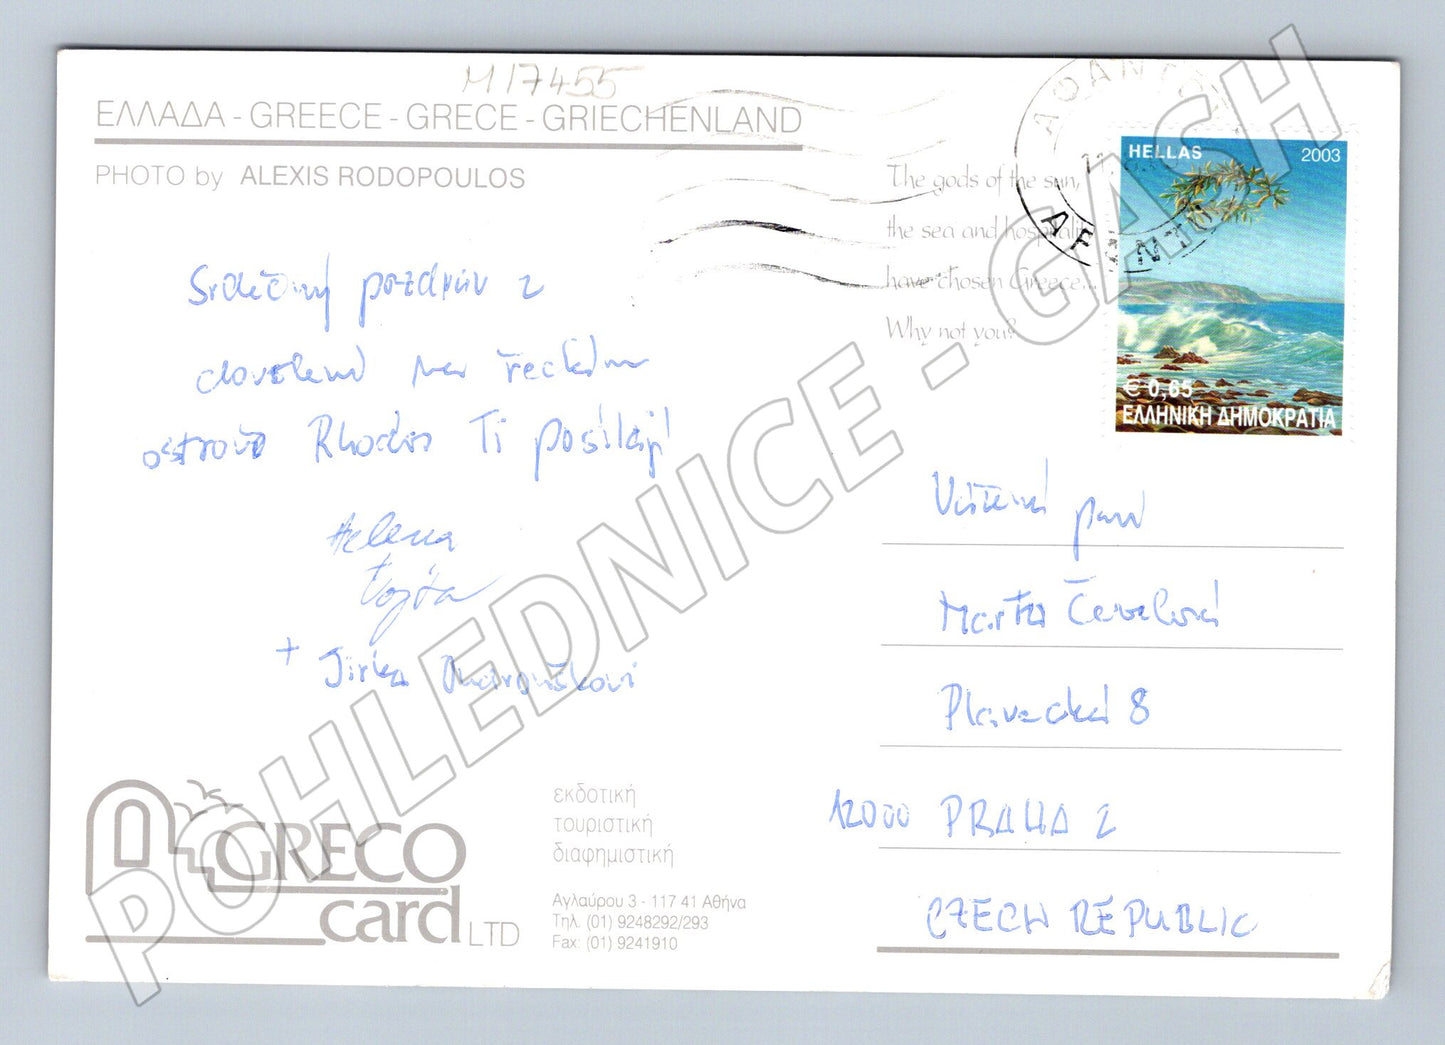 M17455
ΕΛΛΑΔΑ - GREECE - GRECE - GRIECHENLAND
PHOTO by ALEXIS RODOPOULOS
The gods of the sun,
the sea and hospitality
have chosen Greece...
Why not you?
ΑΦΑΝΤΟΥ
HELLAS 2003
€ 0,65
ΕΛΛΗΝΙΚΗ ΔΗΜΟΚΡΑΤΙΑ
Srdečný pozdrav z
dovolené na řeckém
ostrově Rhodos Ti posílají
Helena
Vojta
+ Jirka
Vážená paní
Marta
Plavecká 8
12000 PRAHA 2
CZECH REPUBLIC
GRECO
card LTD
εκδοτική
τουριστική
διαφημιστική
Αγλαύρου 3 - 117 41 Αθήνα
Τηλ. (01) 9248292/293
Fax: (01) 9241910
POHLEDNICE - GASH